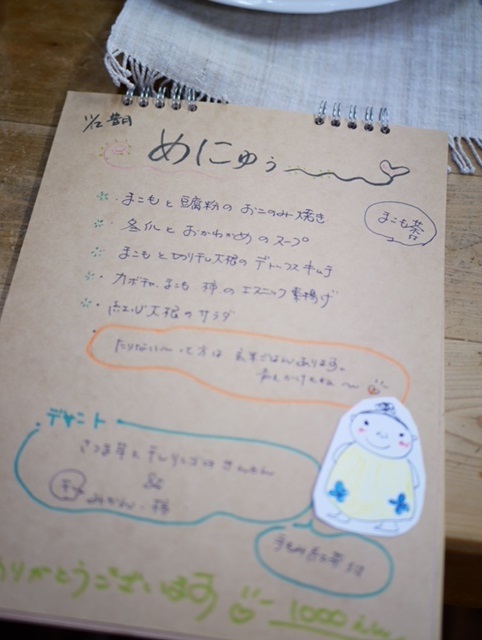 めにゅぅ
まこも茶
・まこもと豆腐粉のおこのみ焼き
・冬瓜とおかわかめのスープ
・まこもと切り干し大根のデトックスキムチ
・カボチャ、まこも 柿のエスニック素揚げ
大根のサラダ
たりない〜って方は 玄米ごはんあります。
声をかけてね〜
デザート
さつま芋と
みかん・柿
ありがとうございます
1000